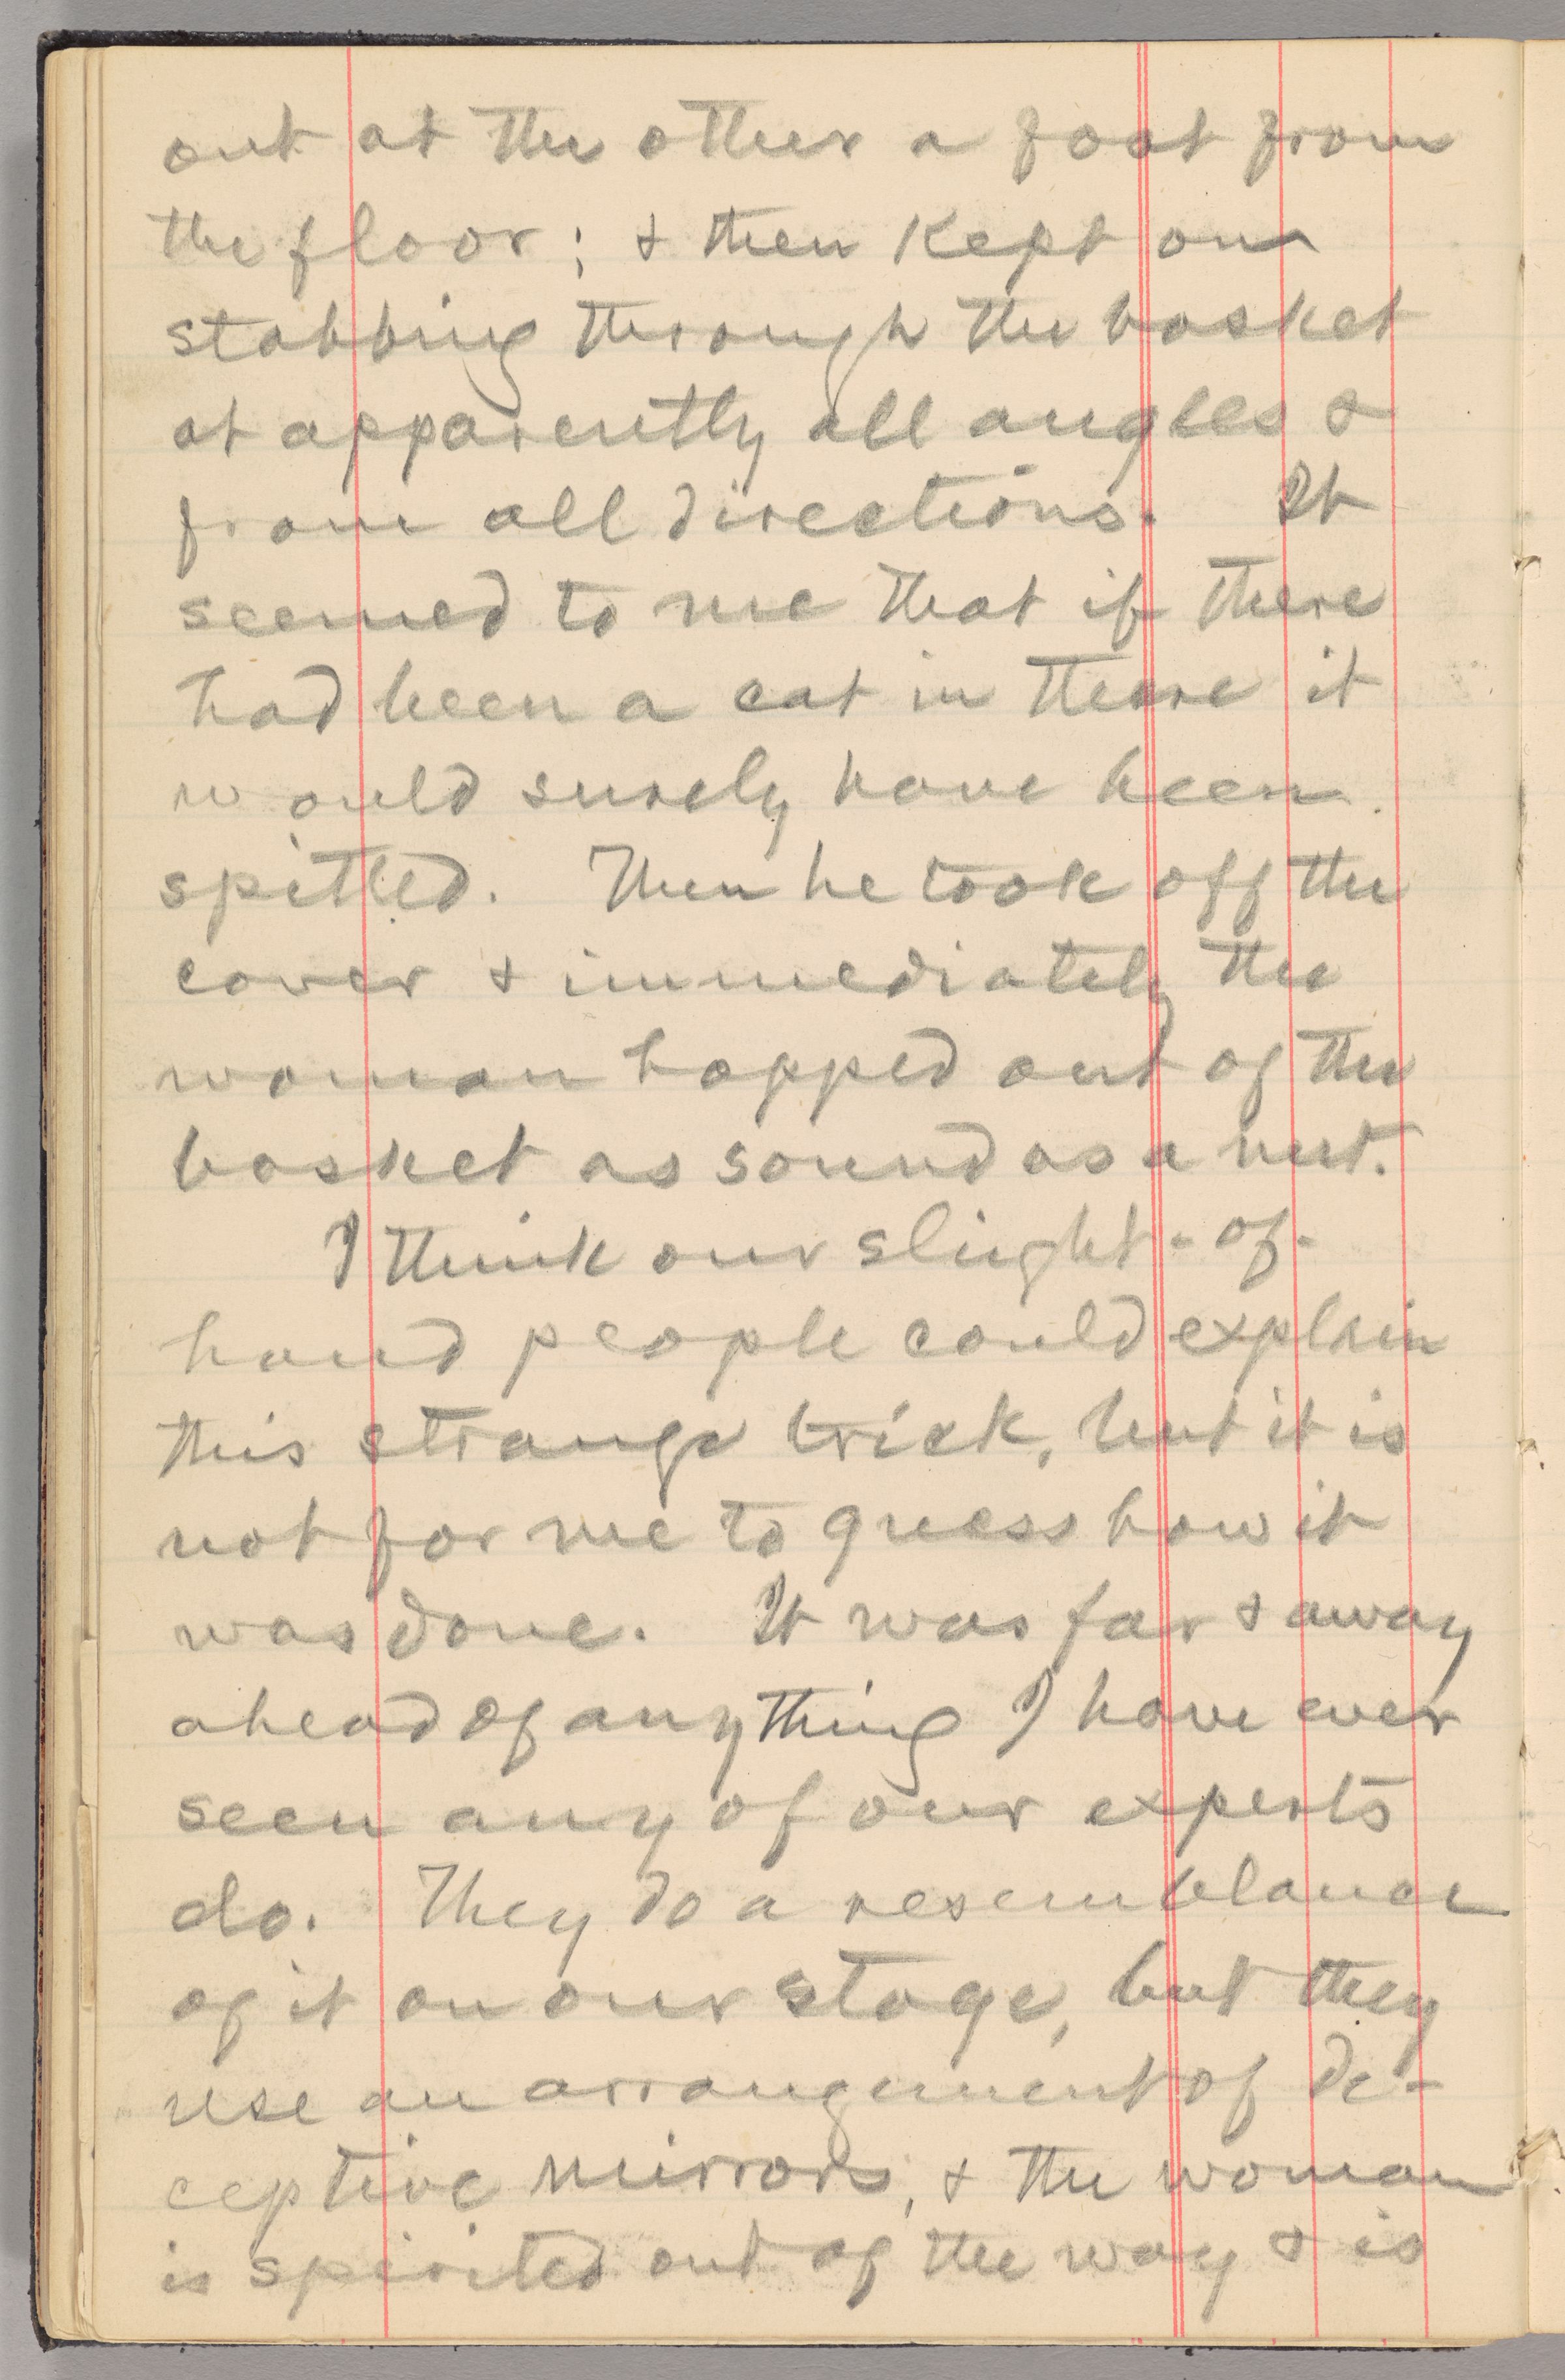 out at the other a foot from
the floor; & then kept on
stabbing through the basket
at apparently all angles &
from all directions. It
seemed to me that if there
had been a cat in there it
would surely have been
spitted. Then he took off the
cover & immediately the
woman hopped out of the
basket as sound as a nut.
I think our slight-of-
hand people could explain
this strange trick, but it is
not for me to guess how it
was done. It was far & away
ahead of anything I have ever
seen any of our experts
do. They do a resemblance
of it on our stage, but they
use an arrangement of de-
ceptive mirrors, & the woman
is spirited out of the way & is